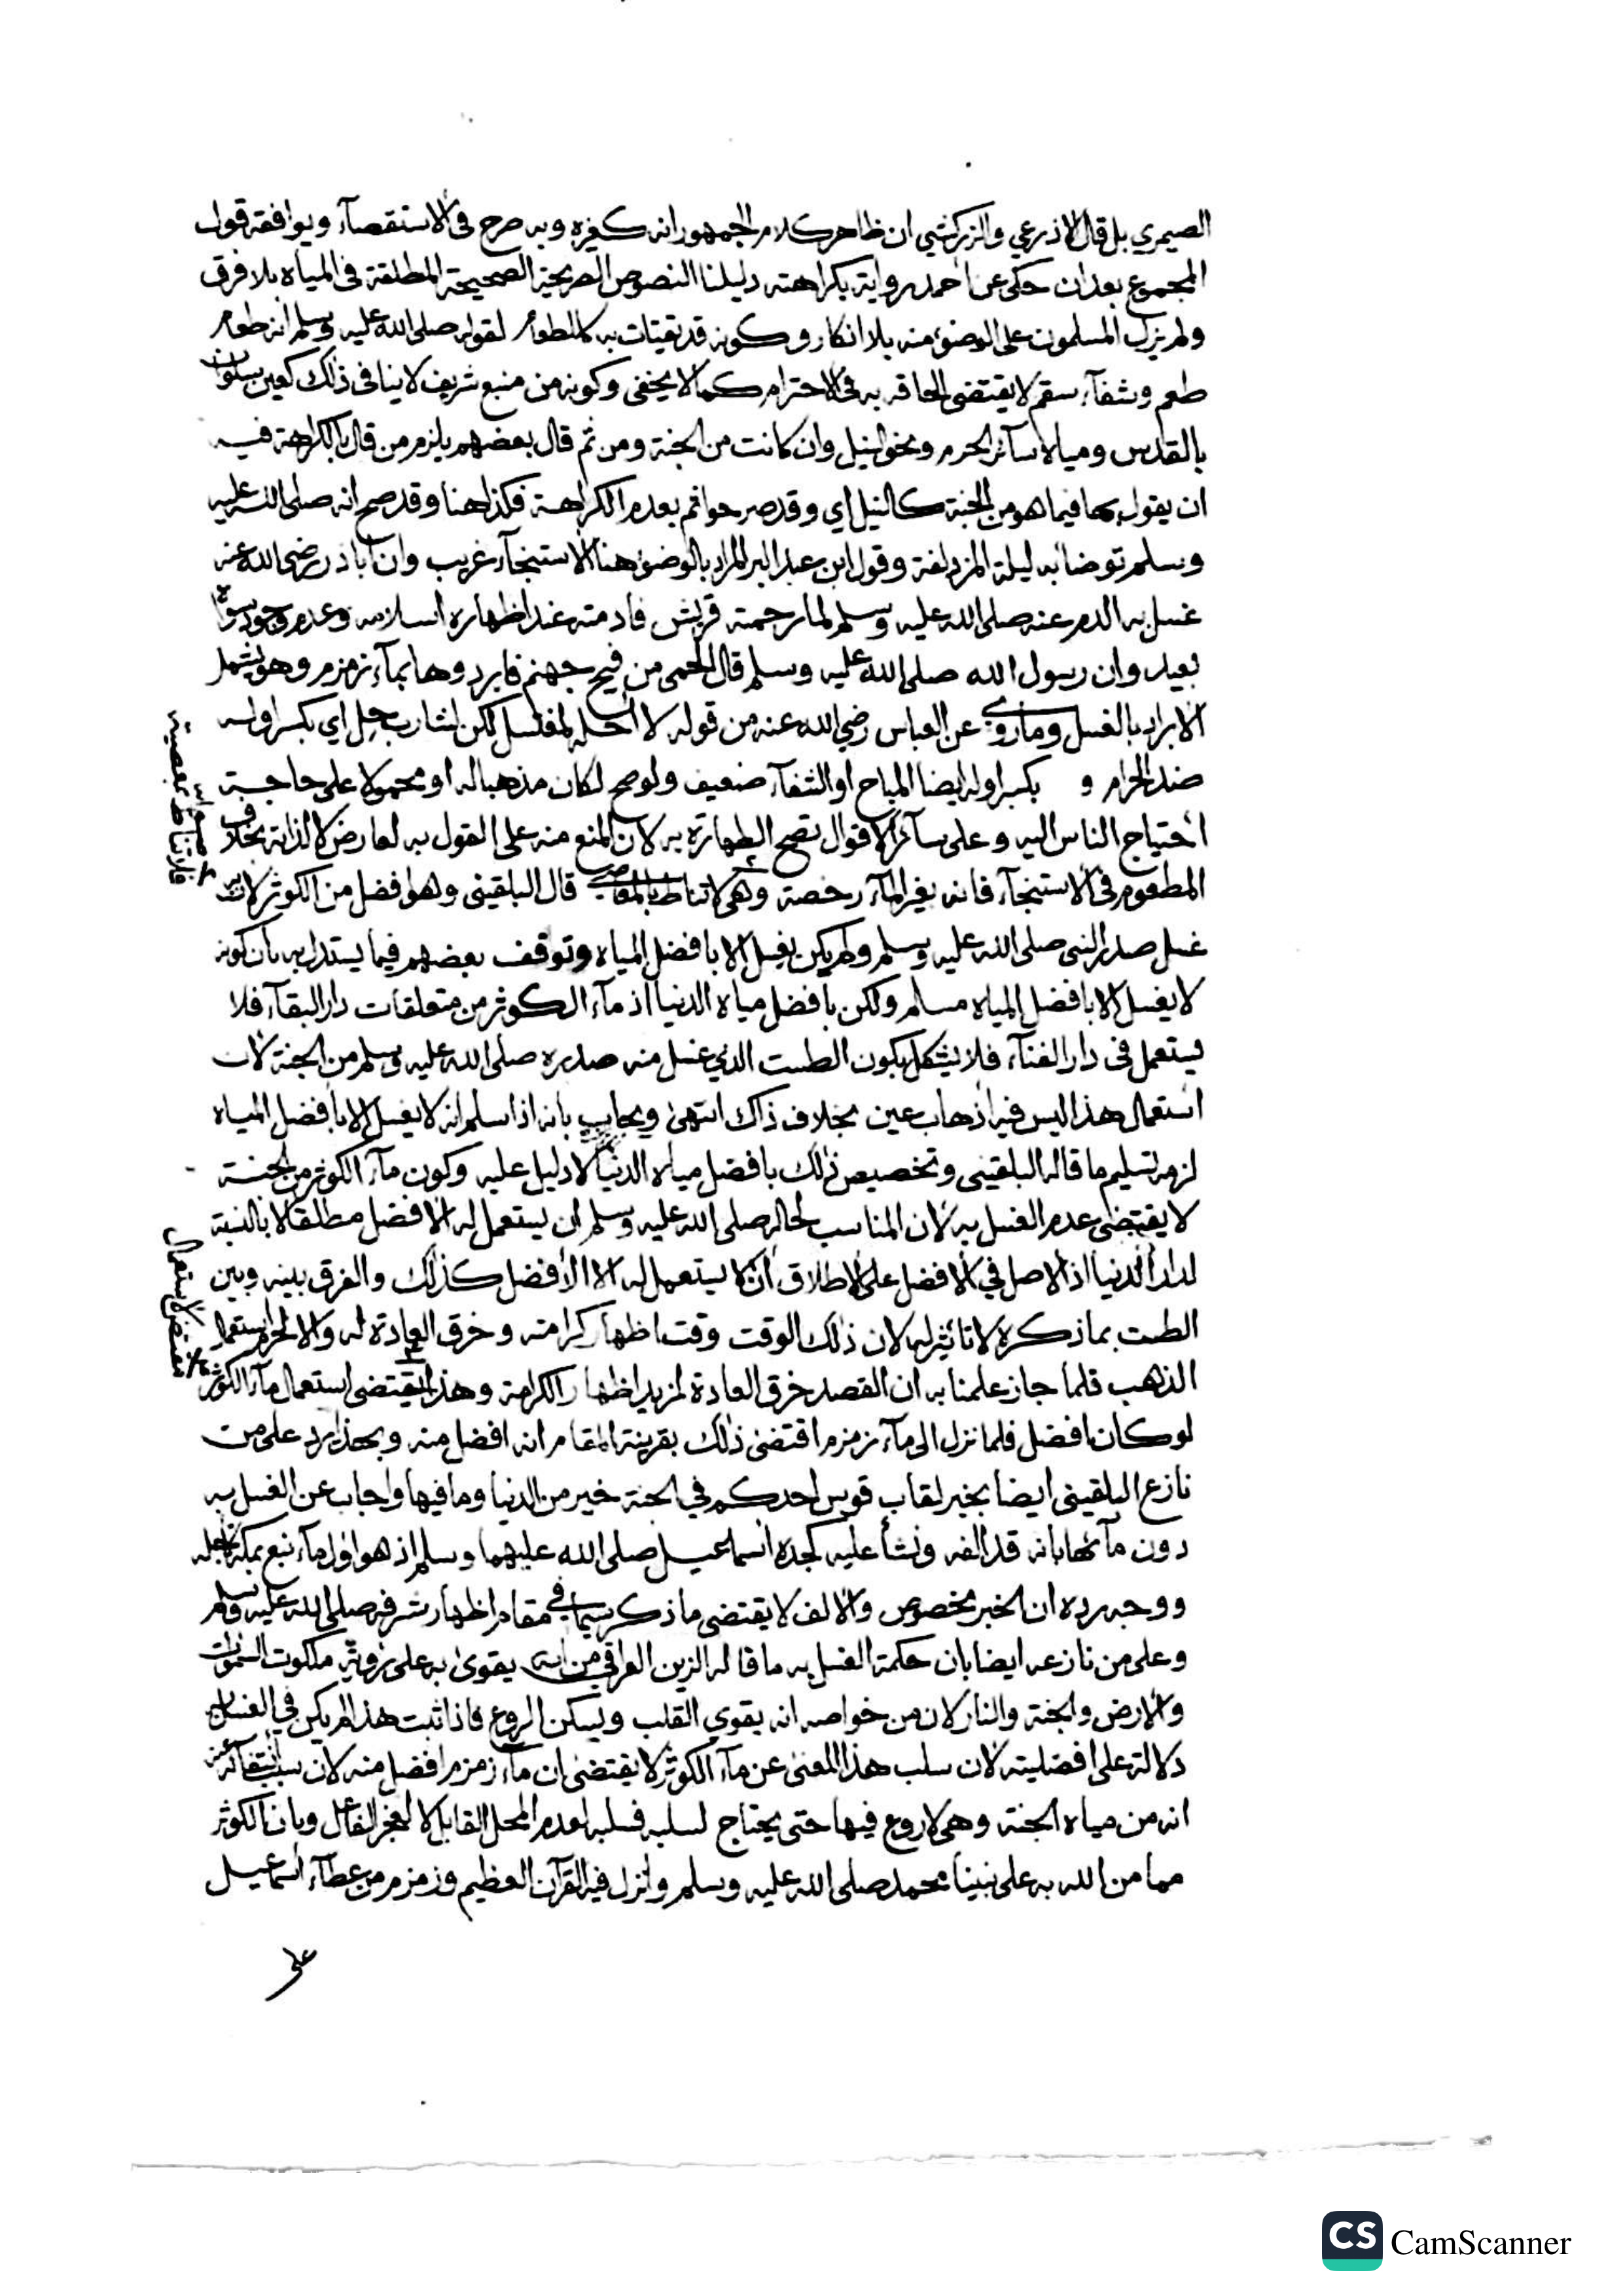 الصيمري بل قال الاذرعي والزركشي ان ظاهر كلام الجمهور انه كغيره وبه صرح في الاستقصآء ويوافقه قول
المجموع بعد ان حكى عن احمد رواية بكراهته دليلنا النصوص الصريحة الصحيحة المطلقة في المياه بلا فرق
ولم يزل المسلمون على الوضوء منه بلا انكار وكونه قد يقتات به كالطعام لقوله صلى الله عليه وسلم انه طعام
طعم وشفآء سقم لا يقتضي الحاقه به في الاحترام كما لا يخفى وكونه من منبع شريف لا ينافي ذلك كعين سلوان
بالقدس ومياه سآئر الحرم ونحو النيل وان كانت من الجنة ومن ثم قال بعضهم يلزم من قال بالكراهة فيه
ان يقول بها فيما هو من الجنة كالنيل اي وقد صرحوا ثم بعدم الكراهة فكذا هنا وقد صح انه صلى الله عليه
وسلم توضا به ليلة المزدلفة وقول ابن عبد البر المراد بالوضوء هنا الاستنجآء غريب وان أبا ذر رضي الله عنه
غسل به الدم عنه صلى الله عليه وسلم لما رجمته قريش فادمته عند اظهاره اسلامه وعدم وجود سواه
بعيد وان رسول الله صلى الله عليه وسلم قال الحمى من فيح جهنم فابردوها بمآء زمزم وهو يشمل
الابراد بالغسل وما روي عن العباس رضي الله عنه من قوله لا احله لمغتسل لكن لشارب حل اي بكسر اوله
ضد الحرام و بكسر اوله ايضا المباح او الشفآء ضعيف ولو صح لكان مذهبا له او محمولا على حاجة
احتياج الناس اليه وعلى سآئر الاقوال تصح الطهارة به لان المنع منه على القول به لعارض لا لذاته بخلاف
المطعوم في الاستنجآء فانه بغير المآء رخصة وهي لا تناط بالمعاصي قال البلقيني وهو افضل من الكوثر لان به
غسل صدر النبي صلى الله عليه وسلم ولم يكن يغسل الا بافضل المياه وتوقف بعضهم فيما يستدل به بان كونه
لا يغسل الا بافضل المياه مسلم ولكن بافضل مياه الدنيا اذ مآء الكوثر من متعلقات دار البقآء فلا
يستعمل في دار الفنآء فلا يشكل بكون الطست الذي غسل منه صدره صلى الله عليه وسلم من الجنة لان
استعمال هذا ليس فيه اذهاب عين بخلاف ذاك انتهى ويجاب بانه اذا سلم انه لا يغسل الا بافضل المياه
لزمه تسليم ما قاله البلقيني وتخصيص ذلك بافضل مياه الدنيا لا دليل عليه وكون مآء الكوثر من الجنة
لا يقتضي عدم الغسل به لان المناسب لحاله صلى الله عليه وسلم ان يستعمل له الافضل مطلقا لا بالنسبة
لدار الدنيا اذ الاصل في الافضل على الاطلاق ان لا يستعمل له الا الافضل كذلك والفرق بينه وبين
الطست بما ذكره لا تاثير له لان ذلك الوقت وقت اظهار كرامته وخرق العادة له والا لحرم استعمال
الذهب فلما جاز علمنا به ان القصد خرق العادة لمزيد اظهار الكرامة وهذا يقتضي استعمال مآء الكوثر
لو كان افضل فلما نزل الى مآء زمزم اقتضى ذلك بقرينة المقام انه افضل منه وبهذا يرد على من
نازع البلقيني ايضا بخبر لقاب قوس احدكم في الجنة خير من الدنيا وما فيها واجاب عن الغسل به
دون مآئها بانه قد الفه ونشأ عليه كجده اسماعيل صلى الله عليهما وسلم اذ هو اول مآء نبع بمكة لاجله
ووجه رده ان الخبر مخصوص والالف لا يقتضي ما ذكر سيما في مقام اظهار شرفه صلى الله عليه وسلم
وعلى من نازعه ايضا بان حكمة الغسل به ما قاله الزين العراقي من انه يقوى به على رؤية ملكوت السموات
والارض والجنة والنار لان من خواصه انه يقوي القلب ويسكن الروع فاذا ثبت هذا لم يكن في الغسل به
دلالة على افضليته لان سلب هذا المعنى عن مآء الكوثر لا يقتضي ان مآء زمزم افضل منه لان سبب انتفآئه عنه
انه من مياه الجنة وهي لا روع فيها حتى يحتاج لسلبه فسلبه لعدم المحل القابل لا لعجز الفاعل وبان الكوثر
مما من الله به على نبينا محمد صلى الله عليه وسلم وانزل فيه القرآن العظيم وزمزم من عطآء اسماعيل
على